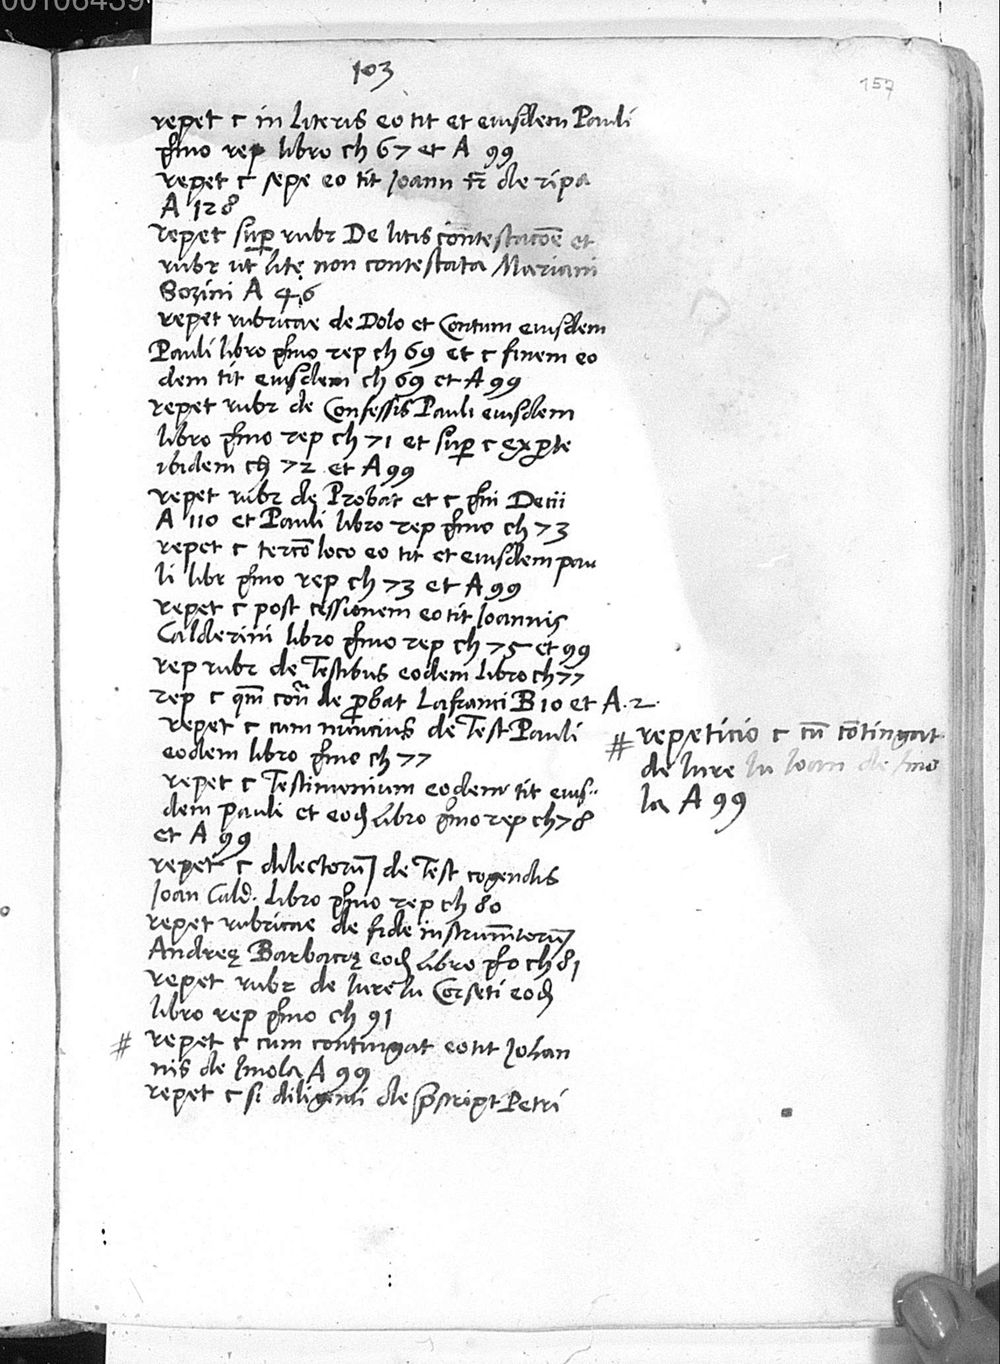 00106439
103
157
repet c in literis eo tit et eiusdem Pauli
p̃mo rep libro ch 67 et A 99
repet c sepe eo tit Joann fr̃ de ripa
A 128
repet sup rubr De litis contestacõe et
rubr ut litę non contestata Mariani
Sozini A 46
repet rubricae de Dolo et Contum eiusdem
Pauli libro p̃mo rep ch 69 et c finem eo
dem tit eiusdem ch 69 et A 99
repet rubr de Confessis Pauli eiusdem
libro p̃mo rep ch 71 et sup c ex pte
ibidem ch 72 et A 99
repet rubr de Probat et c p̃mi Decii
A 110 et Pauli libro rep p̃mo ch 73
repet c tercõ loco eo tit et eiusdem pau
li libr p̃mo rep ch 73 et A 99
repet c post cessionem eo tit Joannis
Calderini libro p̃mo rep ch 75 et 99
rep rubr de Testibus eodem libro ch 77
rep c qm̃ de pbat Lafranci B 10 et A. 2
repet c cum nuncius de Test Pauli
eodem libro p̃mo ch 77
repet c Testimonium eodem tit eius-
dem pauli et eod libro p̃mo rep ch 78
et A 99
# repeticio c cũ cõtingat
de Iure Iu Ioan de Imo
la A 99
repet c dilectorũ de Test cogendis
Joan Cald. libro p̃mo rep ch 80
repet rubricae de fide instrumẽtorũ
Andreę Barbacię eod libro p̃o ch 81
repet rubr de Iure Iu Corseti eod
libro rep p̃mo ch 91
# repet c cum contingat eo tit Johan
nis de Imola A 99
repet c si diligenti de p̃script Petri